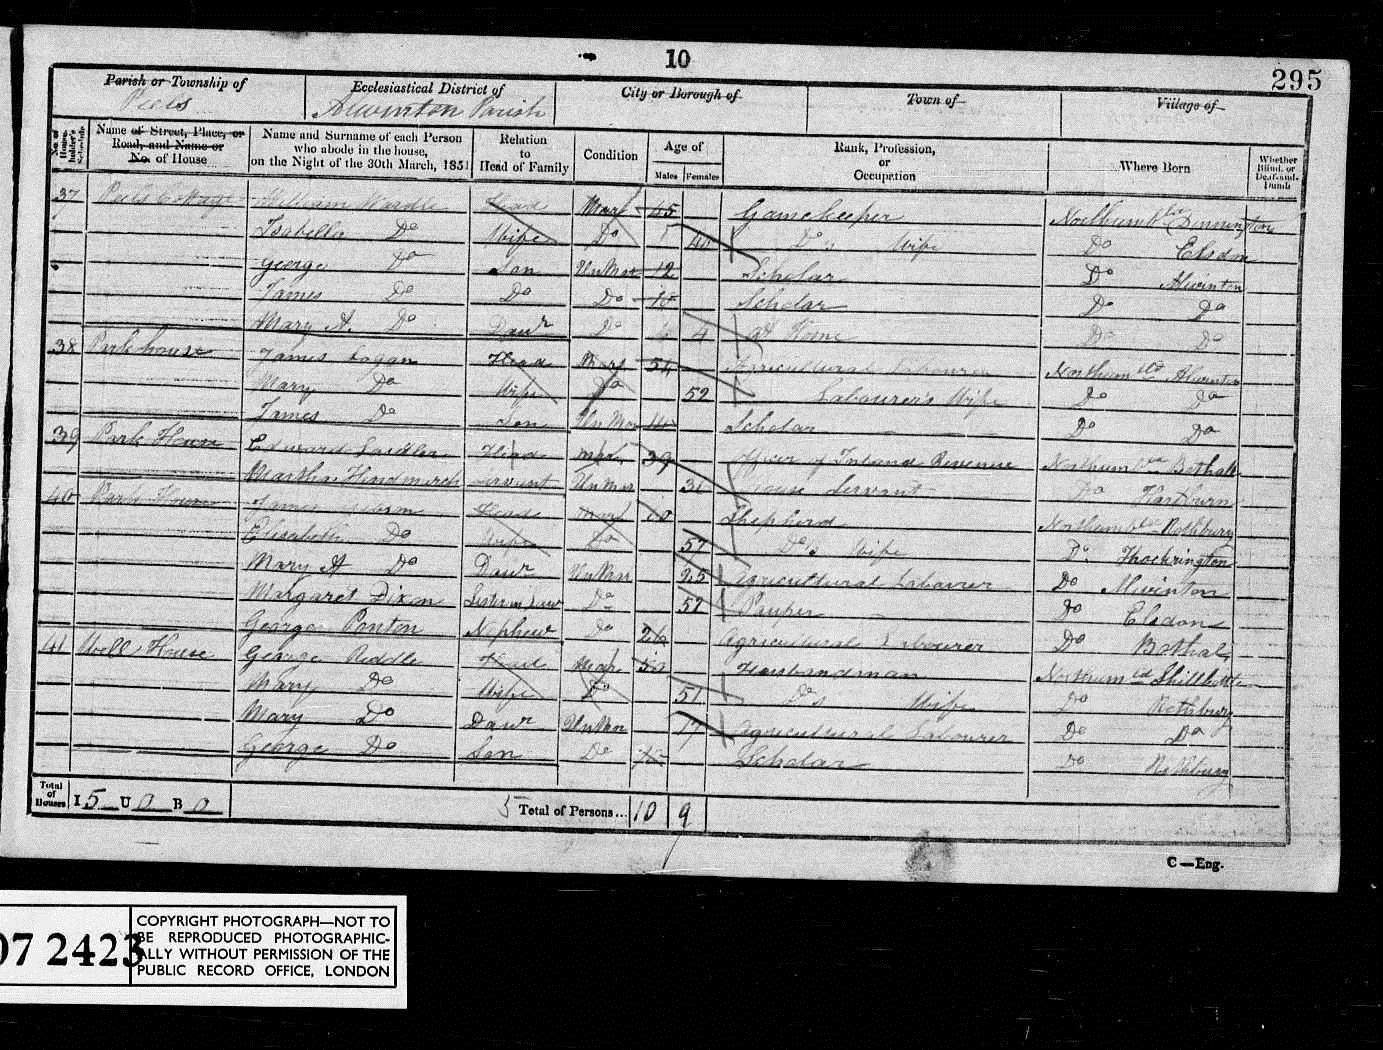 10
295
Parish or Township of
Peels
Ecclesiastical District of
Alwinton Parish
City or Borough of
Town of
Village of
No. of House-holder's Schedule
Name of Street, Place, or Road, and Name or No. of House
Name and Surname of each Person who abode in the house, on the Night of the 30th March, 1851
Relation to Head of Family
Condition
Age of
Males Females
Rank, Profession, or Occupation
Where Born
Whether Blind, or Deaf-and-Dumb
37 Peels Cottage William Wardle Head Mar 45 Gamekeeper Northumbld Dinnington
Isabella Do Wife Do 40 Do's Wife Do Elsdon
George Do Son UnMar 12 Scholar Do Alwinton
James Do Do Do 10 Scholar Do Do
Mary A. Do Daur Do 4 At Home Do Do
38 Park house James Logan Head Mar 54 Agricultural Labourer Northumbld Alwinton
Mary Do Wife Do 52 Labourer's Wife Do Do
James Do Son UnMar Scholar Do Do
39 Park House Edward Laidler Head Mar 39 Officer of Inland Revenue Northumb Bothall
Martha Hindmarch Servant UnMar House Servant Do Hartburn
40 Park House James Head Mar Shepherd Northumb Rothbury
Elisabeth Do Wife Do 57 Do's Wife Do Thockrington
Mary A Do Daur UnMar 25 Agricultural Labourer Do Alwinton
Margaret Dixon Sister in Law Do 52 Pauper Do Elsdon
George Ponton Nephew Do 26 Agricultural Labourer Do Bothal
41 Well House George Riddle Head Mar 50 Husbandman Northumbld Shilbottle
Mary Do Wife Do 51 Do's Wife Do Rothbury
Mary Do Daur UnMar 17 Agricultural Labourer Do Do
George Do Son Do Scholar Do Rothbury
Total of Houses I 5 U 0 B 0 5 Total of Persons... 10 9
C—Eng.
07 2423
COPYRIGHT PHOTOGRAPH—NOT TO
BE REPRODUCED PHOTOGRAPHIC-
ALLY WITHOUT PERMISSION OF THE
PUBLIC RECORD OFFICE, LONDON